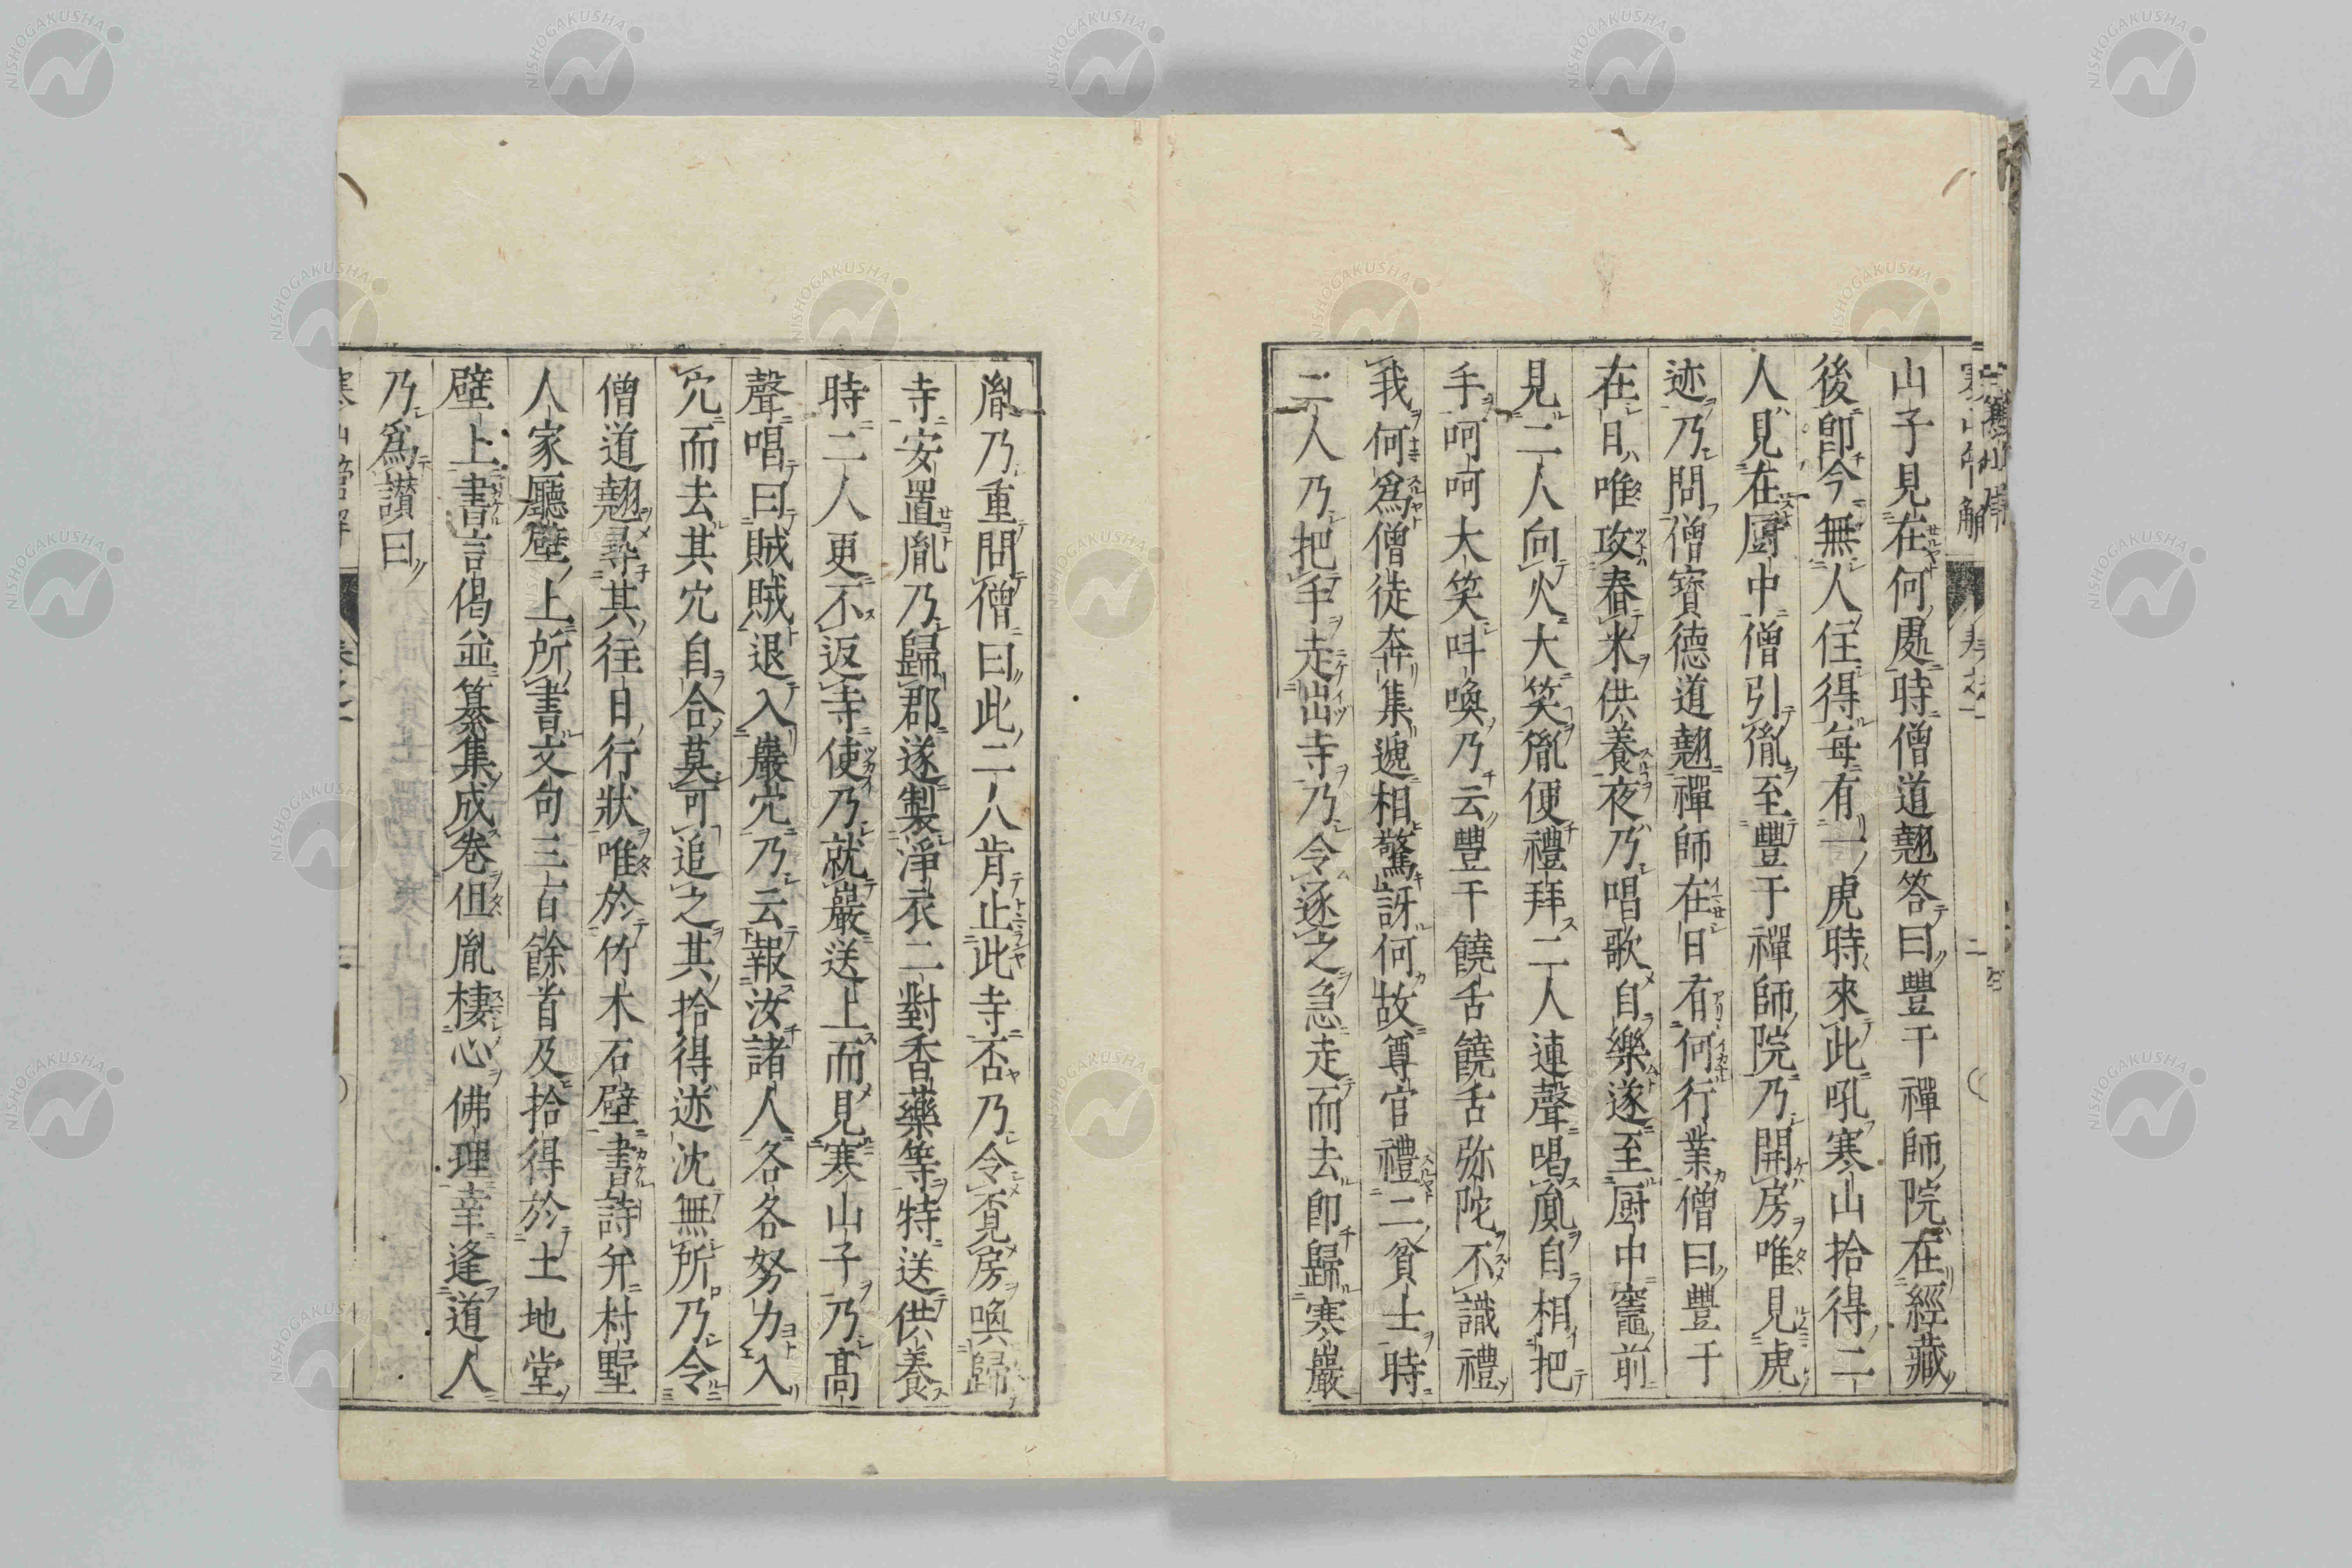 山子見在何處時僧道翹答曰豐干禪師院在經藏
後卽今無人住得每有一虎時來此吼寒山拾得二
人見在厨中僧引胤至豐于禪師院乃開房唯見虎
迹乃問僧寶德道翹禪師在日有何行業僧曰豐干
在日唯攻舂米供養夜乃唱歌自樂遂至厨中竈前
見二人向火大笑胤便禮拜二人連聲喝胤自相把
手呵呵大笑呌喚乃云豐干饒舌饒舌弥陀不識禮
我何爲僧徒奔集遞相驚訝何故尊官禮二貧士時
二人乃把手走出寺乃令逐之急走而去卽歸寒巖
胤乃重問僧曰此二人肯止此寺否乃令覔房喚歸
寺安置胤乃歸郡遂製淨衣二對香藥等特送供養
時二人更不返寺使乃就巖送上而見寒山子乃高
聲唱曰賊賊退入巖穴乃云報汝諸人各各努力入
穴而去其穴自合莫可追之其拾得迹沈無所乃令
僧道翹尋其往日行狀唯於竹木石壁書詩幷村墅
人家廳壁上所書文句三百餘首及拾得於土地堂
壁上書言偈並纂集成卷但胤棲心佛理幸逢道人
乃爲讃曰
NISHOGAKUSHA